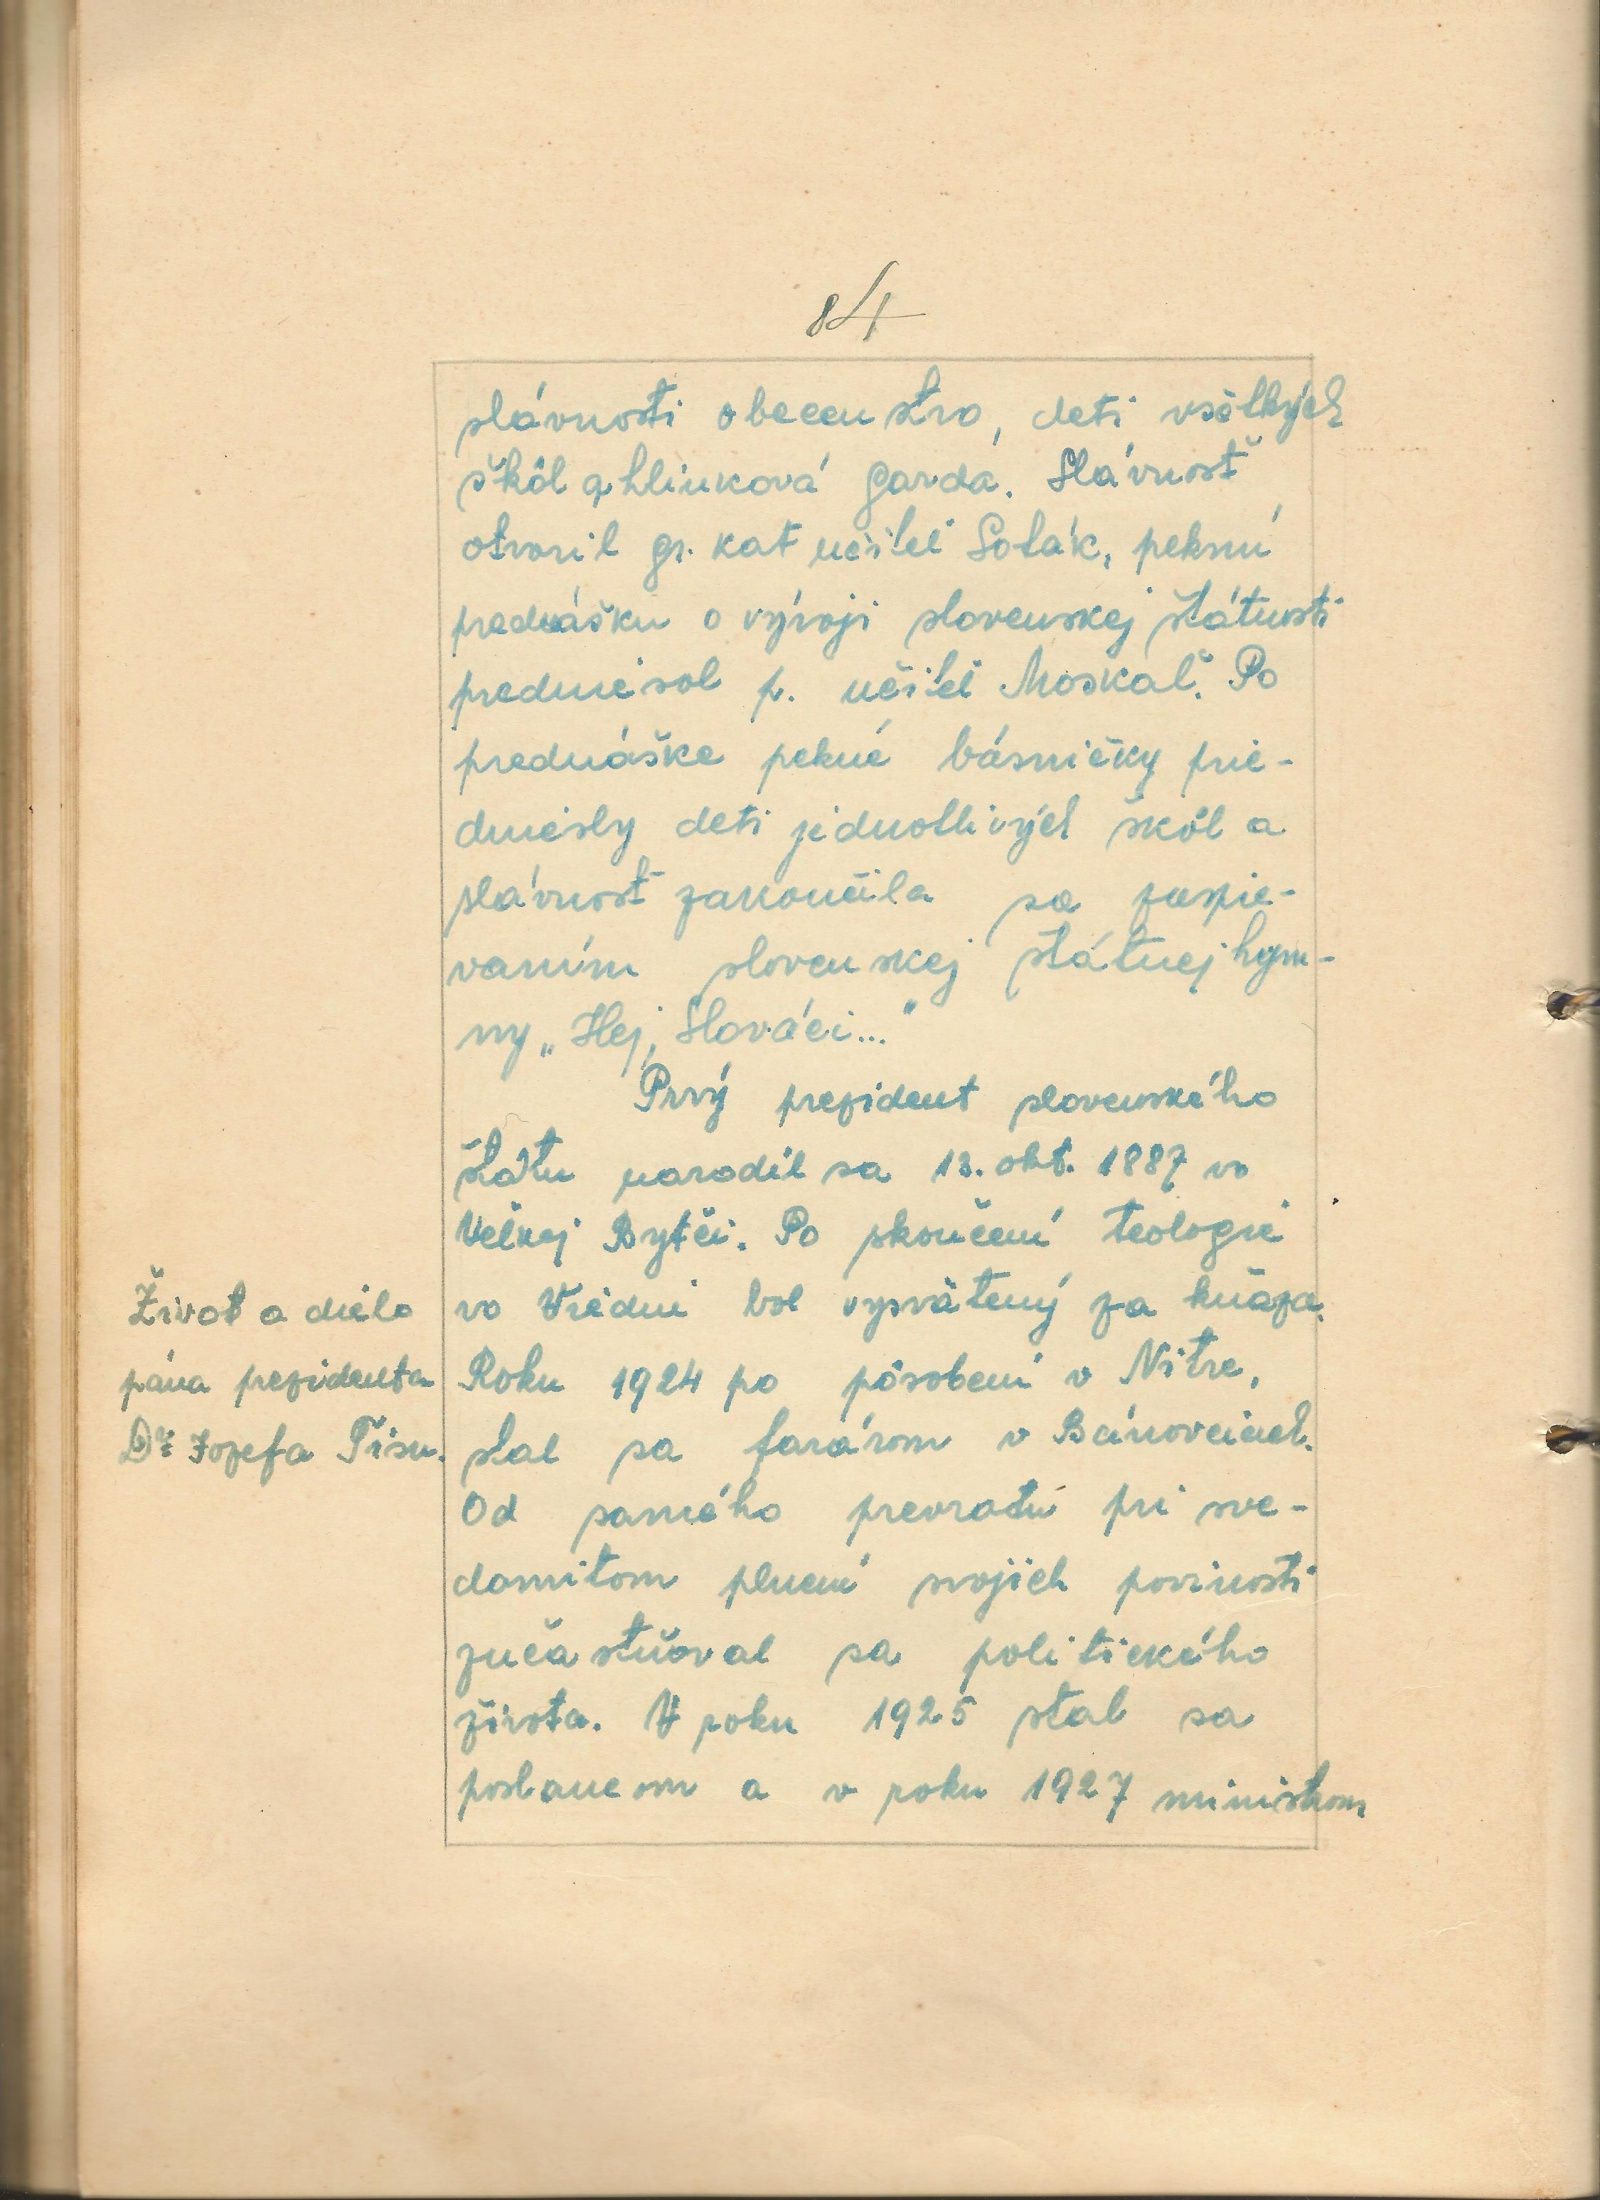 84
slávnosti obecenstvo, deti všetkých
škôl a hlinková garda. Slávnosť
otvoril gr. kat učiteľ Soták, peknú
prednášku o vývoji slovenskej štátnosti
predniesol p. učiteľ Moskaľ. Po
prednáške pekné básničky prie-
dniesly deti jednotlivých škôl a
slávnosť zakončila sa zaspie-
vaním slovenskej štátnej hym-
ny „Hej, Slováci..."
Prvý prezident slovenského
štátu narodil sa 13. okt. 1887 vo
Veľkej Bytči. Po skončení teologie
Život a dielo
pána prezidenta
Dr Jozefa Tisu.
vo Viedni bol vysvätený za kňaza.
Roku 1924 po pôsobení v Nitre,
stal sa farárom v Bánovciach.
Od samého prevratu pri sve-
domitom plnení svojich povinosti
zučastňoval sa politického
života. V roku 1925 stal sa
poslancom a v roku 1927 ministrom